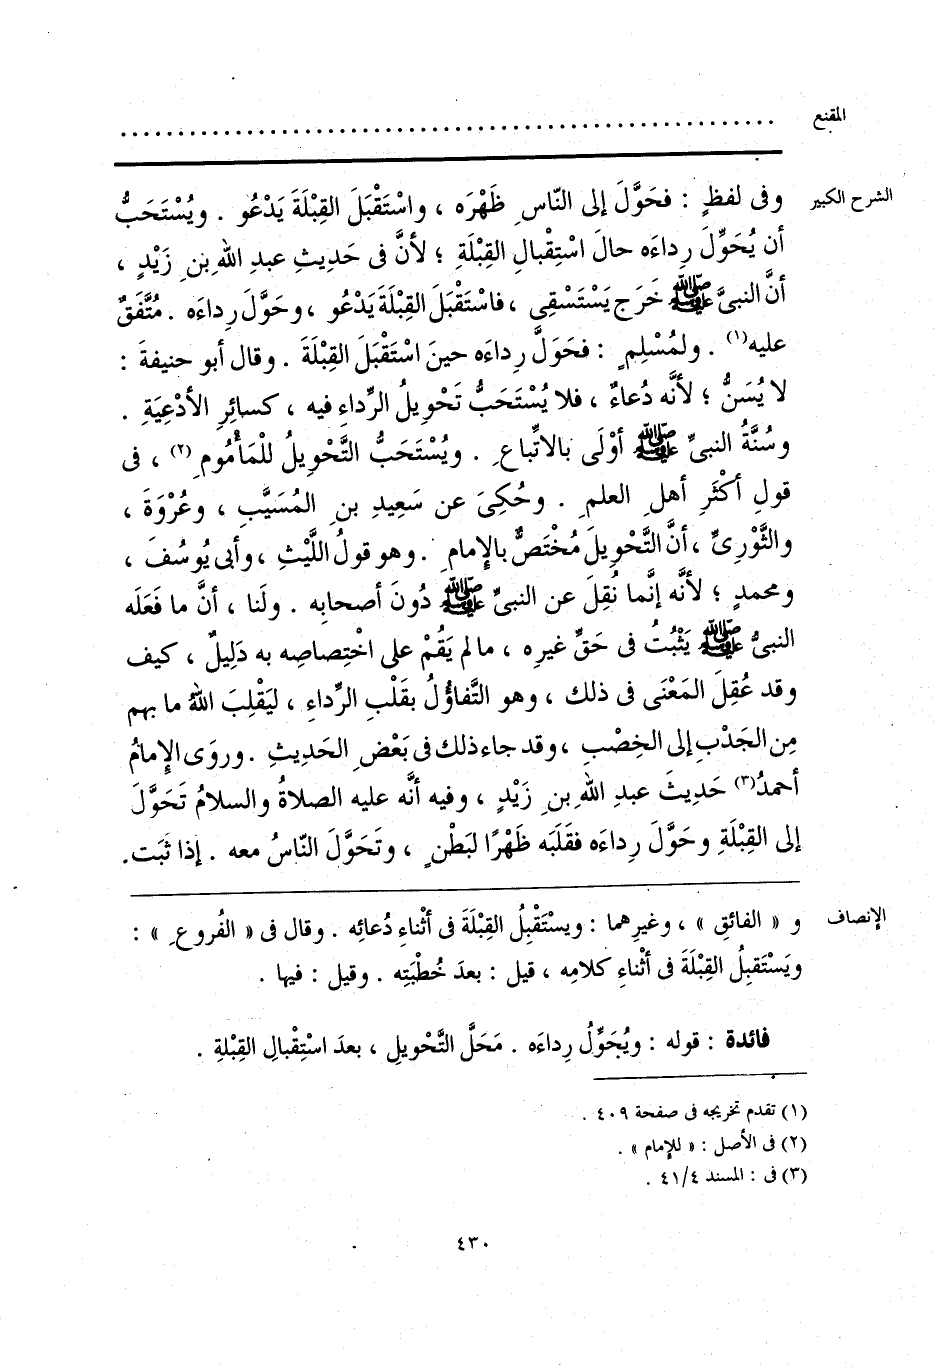 المقنع ........................................................
الشرح الكبير وفى لفظٍ : فحَوَّلَ إلى النّاسِ ظَهْرَه ، واسْتَقْبَلَ القِبْلَةَ يَدْعُو . ويُسْتَحَبُّ
أن يُحَوِّلَ رداءَه حالَ اسْتِقْبالِ القِبْلَةِ ؛ لأنَّ فى حَدِيثِ عبدِ اللهِ بنِ زَيْدٍ ،
أنَّ النبىَّ ﷺ خَرَج يَسْتَسْقِى ، فاسْتَقْبَلَ القِبْلَةَ يَدْعُو ، وحَوَّلَ رِداءَه . مُتَّفَقٌ
عليه(١) . ولمُسْلِمٍ : فحَوَلَ رِداءَه حينَ اسْتَقْبَلَ القِبْلَةَ . وقال أبو حنيفةَ :
لا يُسَنُّ ؛ لأنَّه دُعاءٌ ، فلا يُسْتَحَبُّ تَحْوِيلُ الرِّداءِ فيه ، كسائِرِ الأدْعِيَةِ .
وسُنَّةُ النبىِّ ﷺ أوْلَى بالاتِّباعِ . ويُسْتَحَبُّ التَّحْوِيلُ للْمَأْمُومِ(٢) ، فى
قولِ أكْثَرِ أهلِ العلمِ . وحُكِىَ عن سَعِيدِ بنِ المُسَيَّبِ ، وعُرْوَةَ ،
والثَّوْرِىِّ ، أنَّ التَّحْوِيلَ مُخْتَصٌّ بالإِمامِ . وهو قولُ اللَّيْثِ ، وأبى يُوسُفَ ،
ومحمدٍ ؛ لأنَّه إنَّما نُقِلَ عن النبىِّ ﷺ دُونَ أصحابِه . ولَنا ، أنَّ ما فَعَلَه
النبىُّ ﷺ يَثْبُتُ فى حَقِّ غيرِه ، ما لم يَقُمْ على اخْتِصاصِه به دَلِيلٌ ، كيف
وقد عُقِلَ المَعْنَى فى ذلك ، وهو التَّفاؤُلُ بقَلْبِ الرِّداءِ ، ليَقْلِبَ اللهُ ما بهم
مِن الجَدْبِ إلى الخِصْبِ ، وقد جاء ذلك فى بَعْضِ الحَدِيثِ . وروَى الإِمامُ
أحمدُ(٣) حَدِيثَ عبدِ اللهِ بنِ زَيْدٍ ، وفيه أنَّه عليه الصلاةُ والسلامُ تَحَوَّلَ
إلى القِبْلَةِ وحَوَّلَ رِداءَه فقَلَبَه ظَهْرًا لبَطْنٍ ، وتَحَوَّلَ النّاسُ معه . إذا ثَبَت .
الإنصاف و « الفائقِ » ، وغيرِهما : ويسْتَقْبِلُ القِبْلَةَ فى أثْناءِ دُعائِه . وقال فى « الفُروعِ » :
ويَسْتَقبِلُ القِبْلَةَ فى أثْناءِ كلامِه ، قيل : بعدَ خُطْبَتِه . وقيل : فيها .
فائدة : قوله : ويُحَوِّلُ رِداءَه . مَحَلُّ التَّحْويلِ ، بعدَ اسْتِقْبالِ القِبْلةِ .
(١) تقدم تخريجه فى صفحة ٤٠٩ .
(٢) فى الأصل : « للإمام » .
(٣) فى : المسند ٤/ ٤١ .
٤٣٠